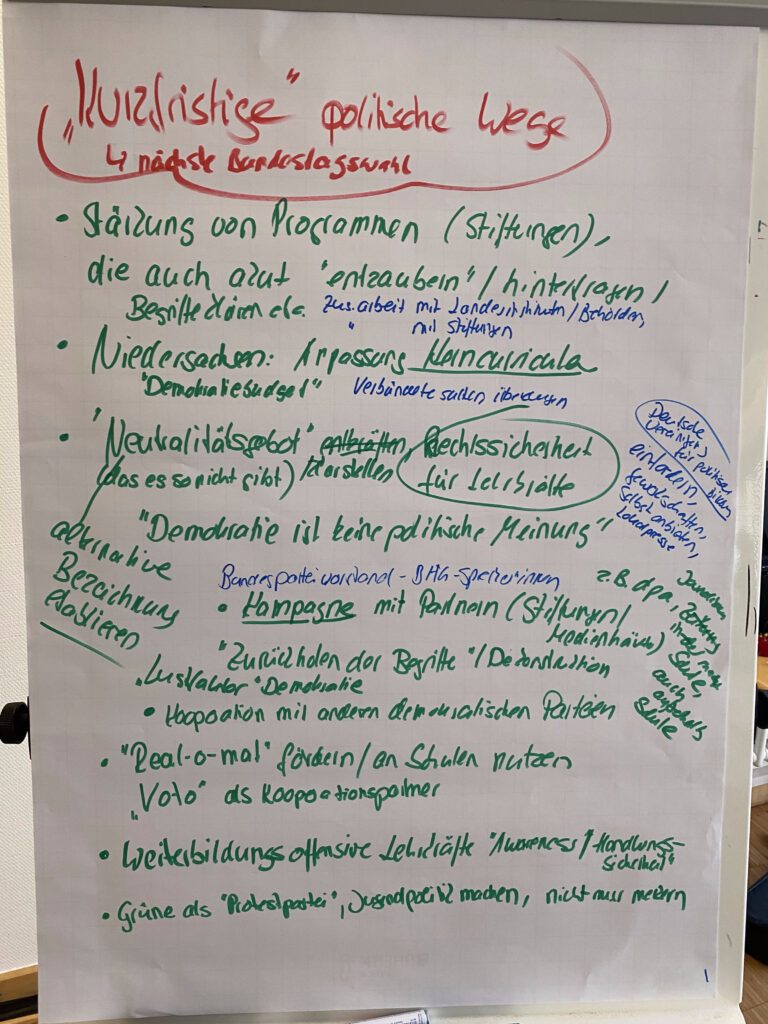 „Kurzfristige" politische Wege
↳ nächste Bundestagswahl
• Stärkung von Programmen (Stiftungen),
die auch akut "entzaubern" / hinterfragen /
Begriffe klären etc. Zus.arbeit mit Landesinstituten / Behörden,
" mit Stiftungen
• Niedersachsen: Anpassung Kerncurricula
"Demokratiebudget" Verbündete suchen überzeugen
• "Neutralitätsgebot" entkräften, Rechtssicherheit
(das es so nicht gibt) klarstellen für Lehrkräfte
Deutsche
Vereinigung
für politische
Bildung
einfordern,
Gewerkschaften,
Selbst anbieten,
Lokalpresse
alternative
Bezeichnung
etablieren
"Demokratie ist keine politische Meinung"
Bundesparteivorstand - BAG-Sprecher*innen
• Kampagne mit Partnern (Stiftungen /
Medienhäuser)
z.B. dpa, Zeitung
in der Schule,
auch außerhalb
Schule
Journalisten
"Zurückholen der Begriffe" / Dekonstruktion
"Lustfaktor" Demokratie
• Kooperation mit anderen demokratischen Parteien
• "Real-o-mat" fördern / an Schulen nutzen
"Voto" als Kooperationspartner
• Weiterbildungsoffensive Lehrkräfte "Awareness / Handlungs-
sicherheit"
• Grüne als "Protestpartei", Jugendpolitik machen, nicht nur meckern
1